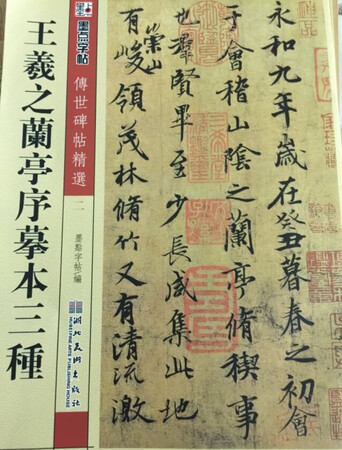 永和九年歲在癸丑暮春之初會
于會稽山陰之蘭亭脩稧事
也羣賢畢至少長咸集此地
有崇山峻領茂林脩竹又有清流激
墨点字帖
傳世碑帖精選
二
墨點字帖/編
湖北美術出版社
HUBEI FINE ARTS PUBLISHING HOUSE
王羲之蘭亭序摹本三種